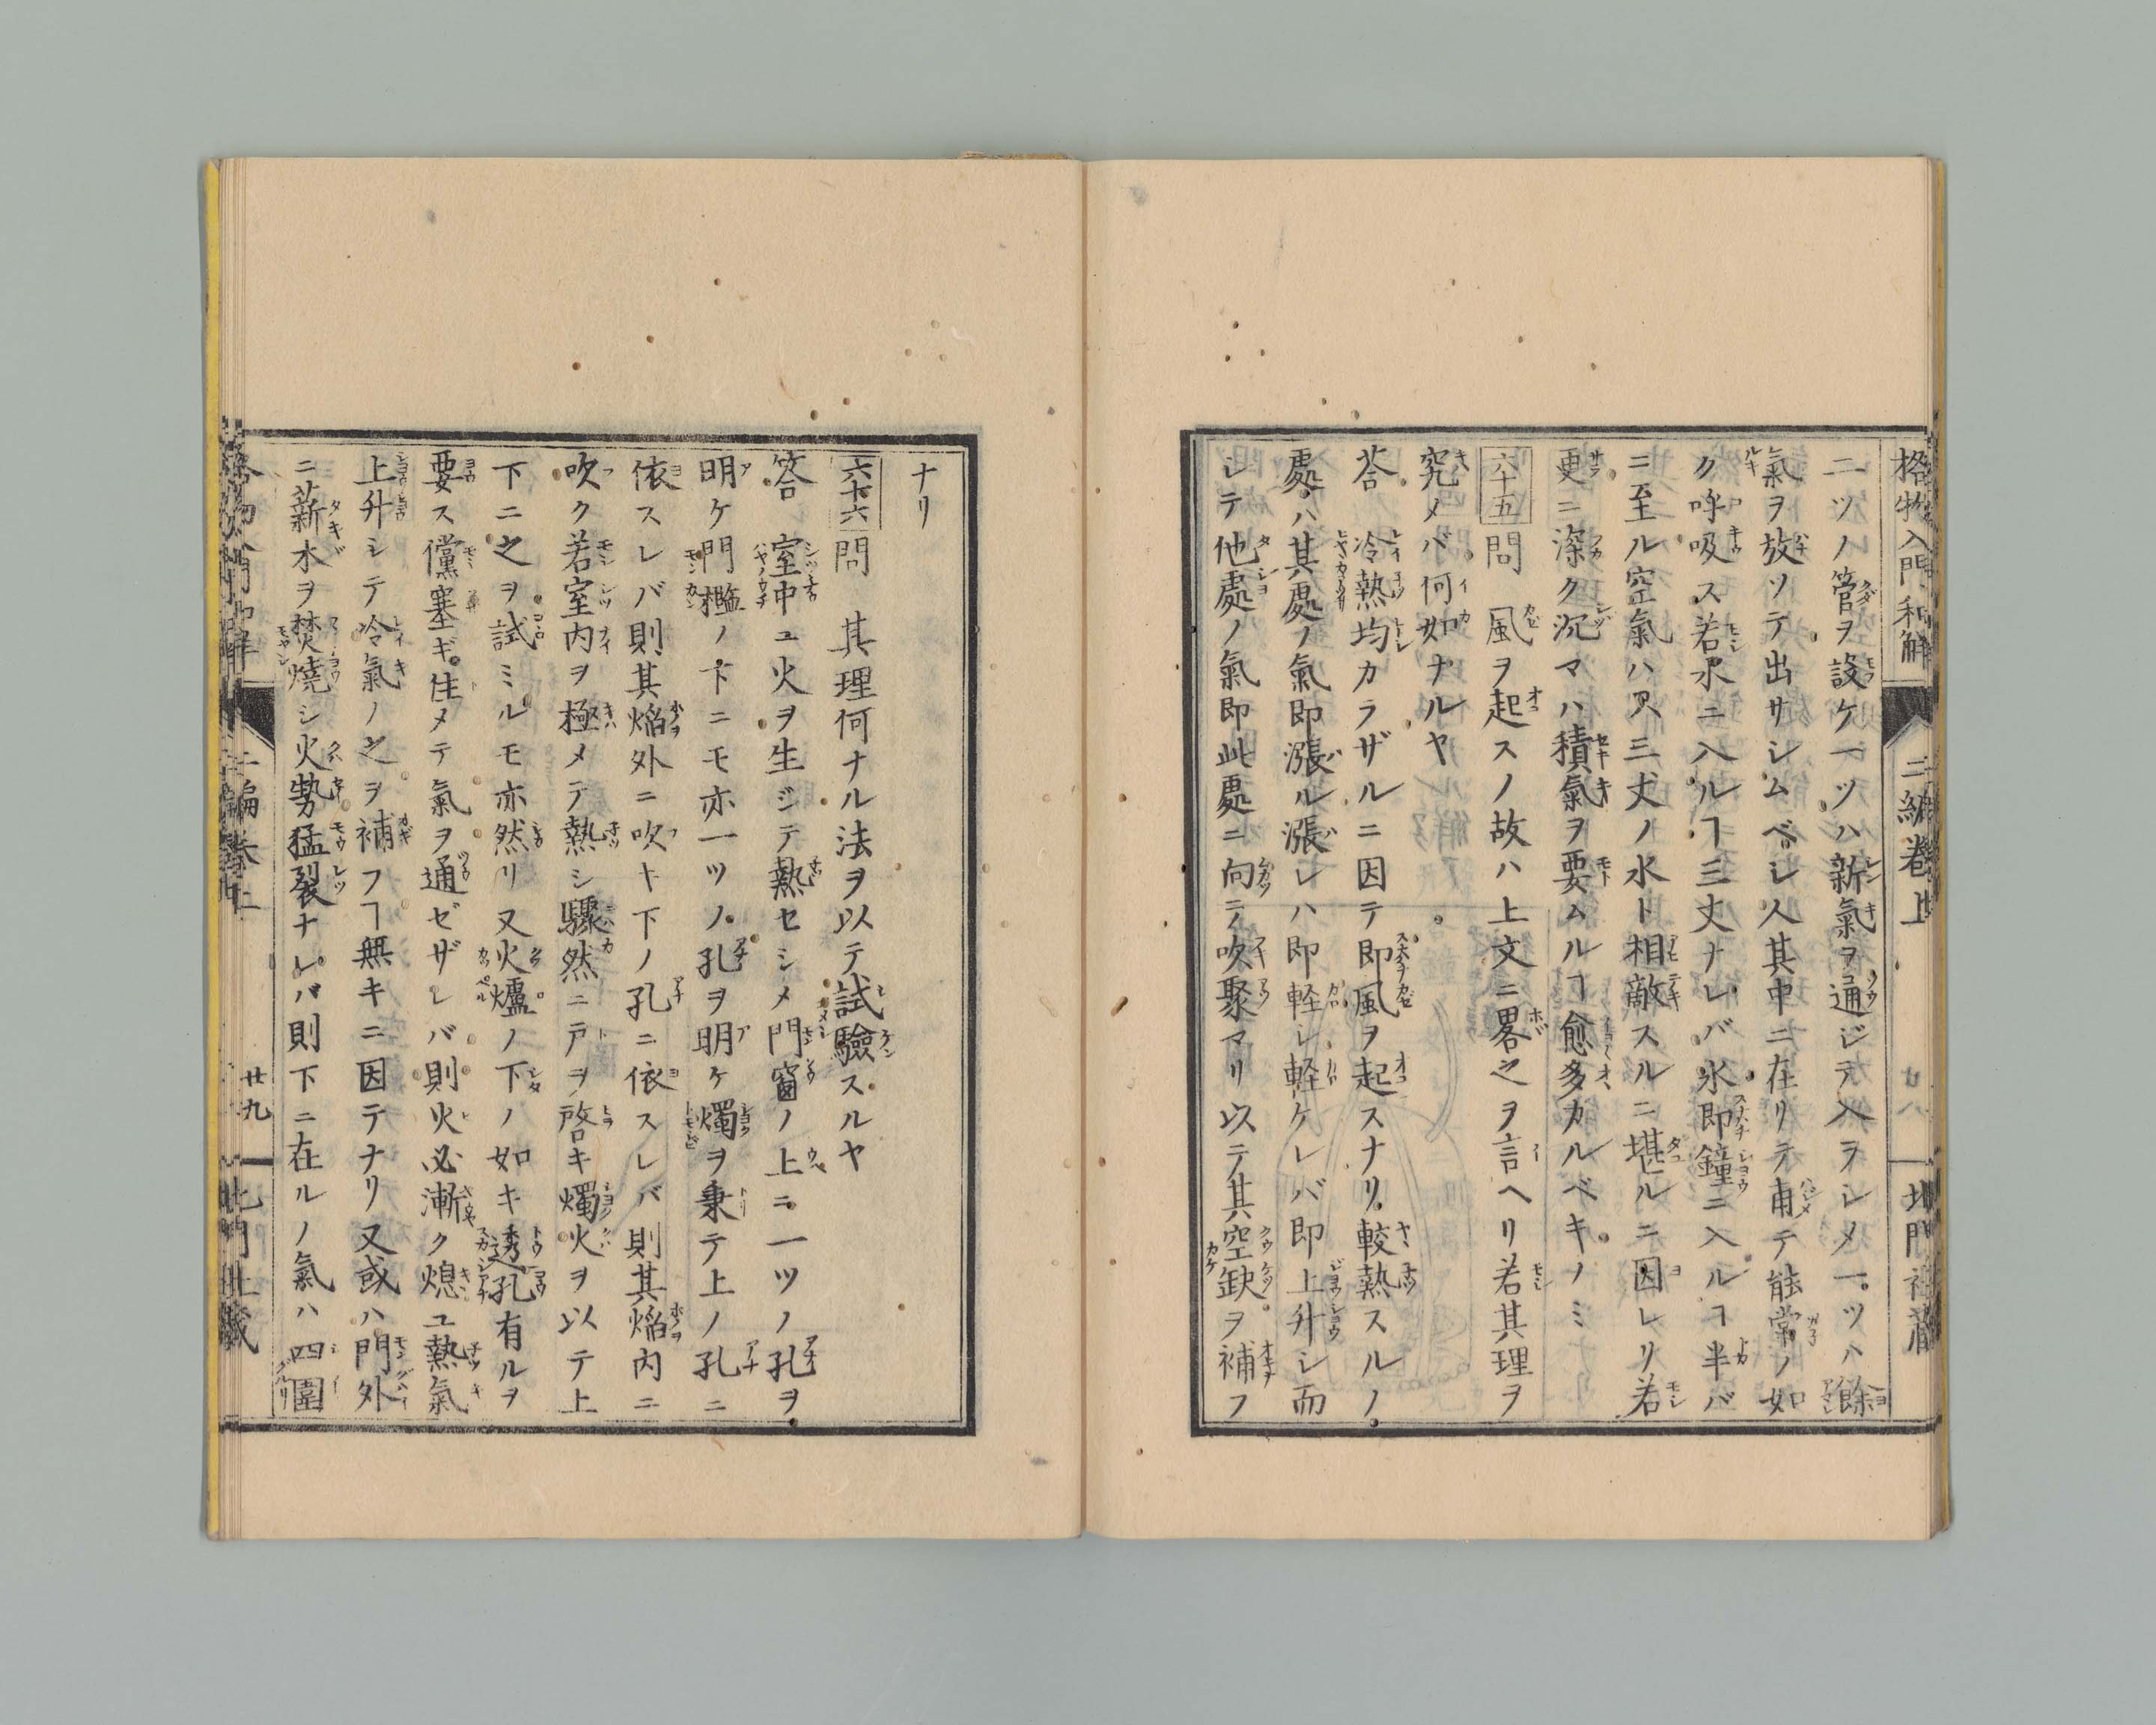 格物入門和解 二編卷上 廿八 北門社藏
二ツノ管ヲ設ケ一ツハ新氣ヲ通ジテ入ラシメ一ツハ餘
氣ヲ放ツテ出サシムベシ人其中ニ在リテ甫テ能常ノ如
ク呼吸ス若水ニ入ルヿ三丈ナレバ水即鐘ニ入ルヿ半バ
ニ至ル空氣ハ只三丈ノ水ト相敵スルニ堪ルニ因レリ若
更ニ深ク沉マハ積氣ヲ要ムルヿ愈多カルベキノミ
六十五 問 風ヲ起スノ故ハ上文ニ畧之ヲ言ヘリ若其理ヲ
究メバ何如ナルヤ
荅 冷熱均カラザルニ因テ即風ヲ起スナリ較熱スルノ
處ハ其處ノ氣即漲ル漲レハ即軽シ軽ケレバ即上升シ而
シテ他處ノ氣即此處ニ向テ吹聚マリ以テ其空缺ヲ補フ
ナリ
六十六 問 其理何ナル法ヲ以テ試驗スルヤ
答 室中ユ火ヲ生ジテ熱セシメ門窗ノ上ニ一ツノ孔ヲ
明ケ門檻ノ下ニモ亦一ツノ孔ヲ明ケ燭ヲ秉テ上ノ孔ニ
依スレバ則其焔外ニ吹キ下ノ孔ニ依スレバ則其焔内ニ
吹ク若室内ヲ極メテ熱シ驟然ニ戸ヲ啓キ燭火ヲ以テ上
下ニ之ヲ試ミルモ亦然リ又火爐ノ下ノ如キ透孔有ルヲ
要ス儻塞ギ住メテ氣ヲ通ゼザレバ則火必漸ク熄ユ熱氣
上升シテ冷氣ノ之ヲ補フヿ無キニ因テナリ又或ハ門外
ニ薪木ヲ焚燒シ火勢猛裂ナレバ則下ニ在ルノ氣ハ四圍
格物入門和解 二編卷上 廿九 北門社藏